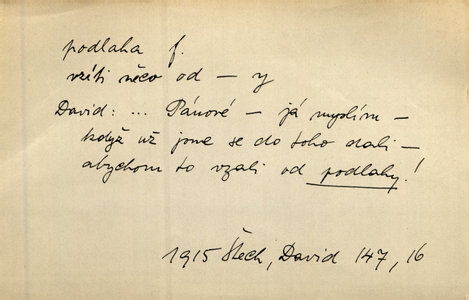 podlaha f.
vzíti něco od – y
David: ... Pánové – já myslím –
když už jsme se do toho dali –
abychom to vzali od podlahy!
1915 Štech, David 147, 16